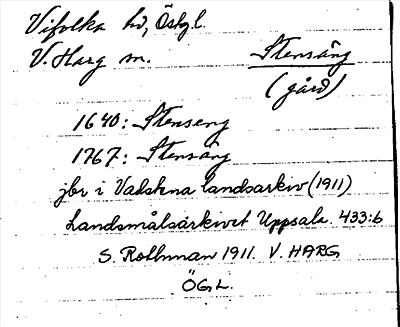 Vifolka hd, Östgl.
V. Harg sn.
Stensäng
(gård)
1640: Stenseng
1767: Stensäng
jbr i Vadstena landsarkiv (1911)
Landsmålsarkivet Uppsala. 433:6
S. Rothman 1911. V. HARG
ÖGL.